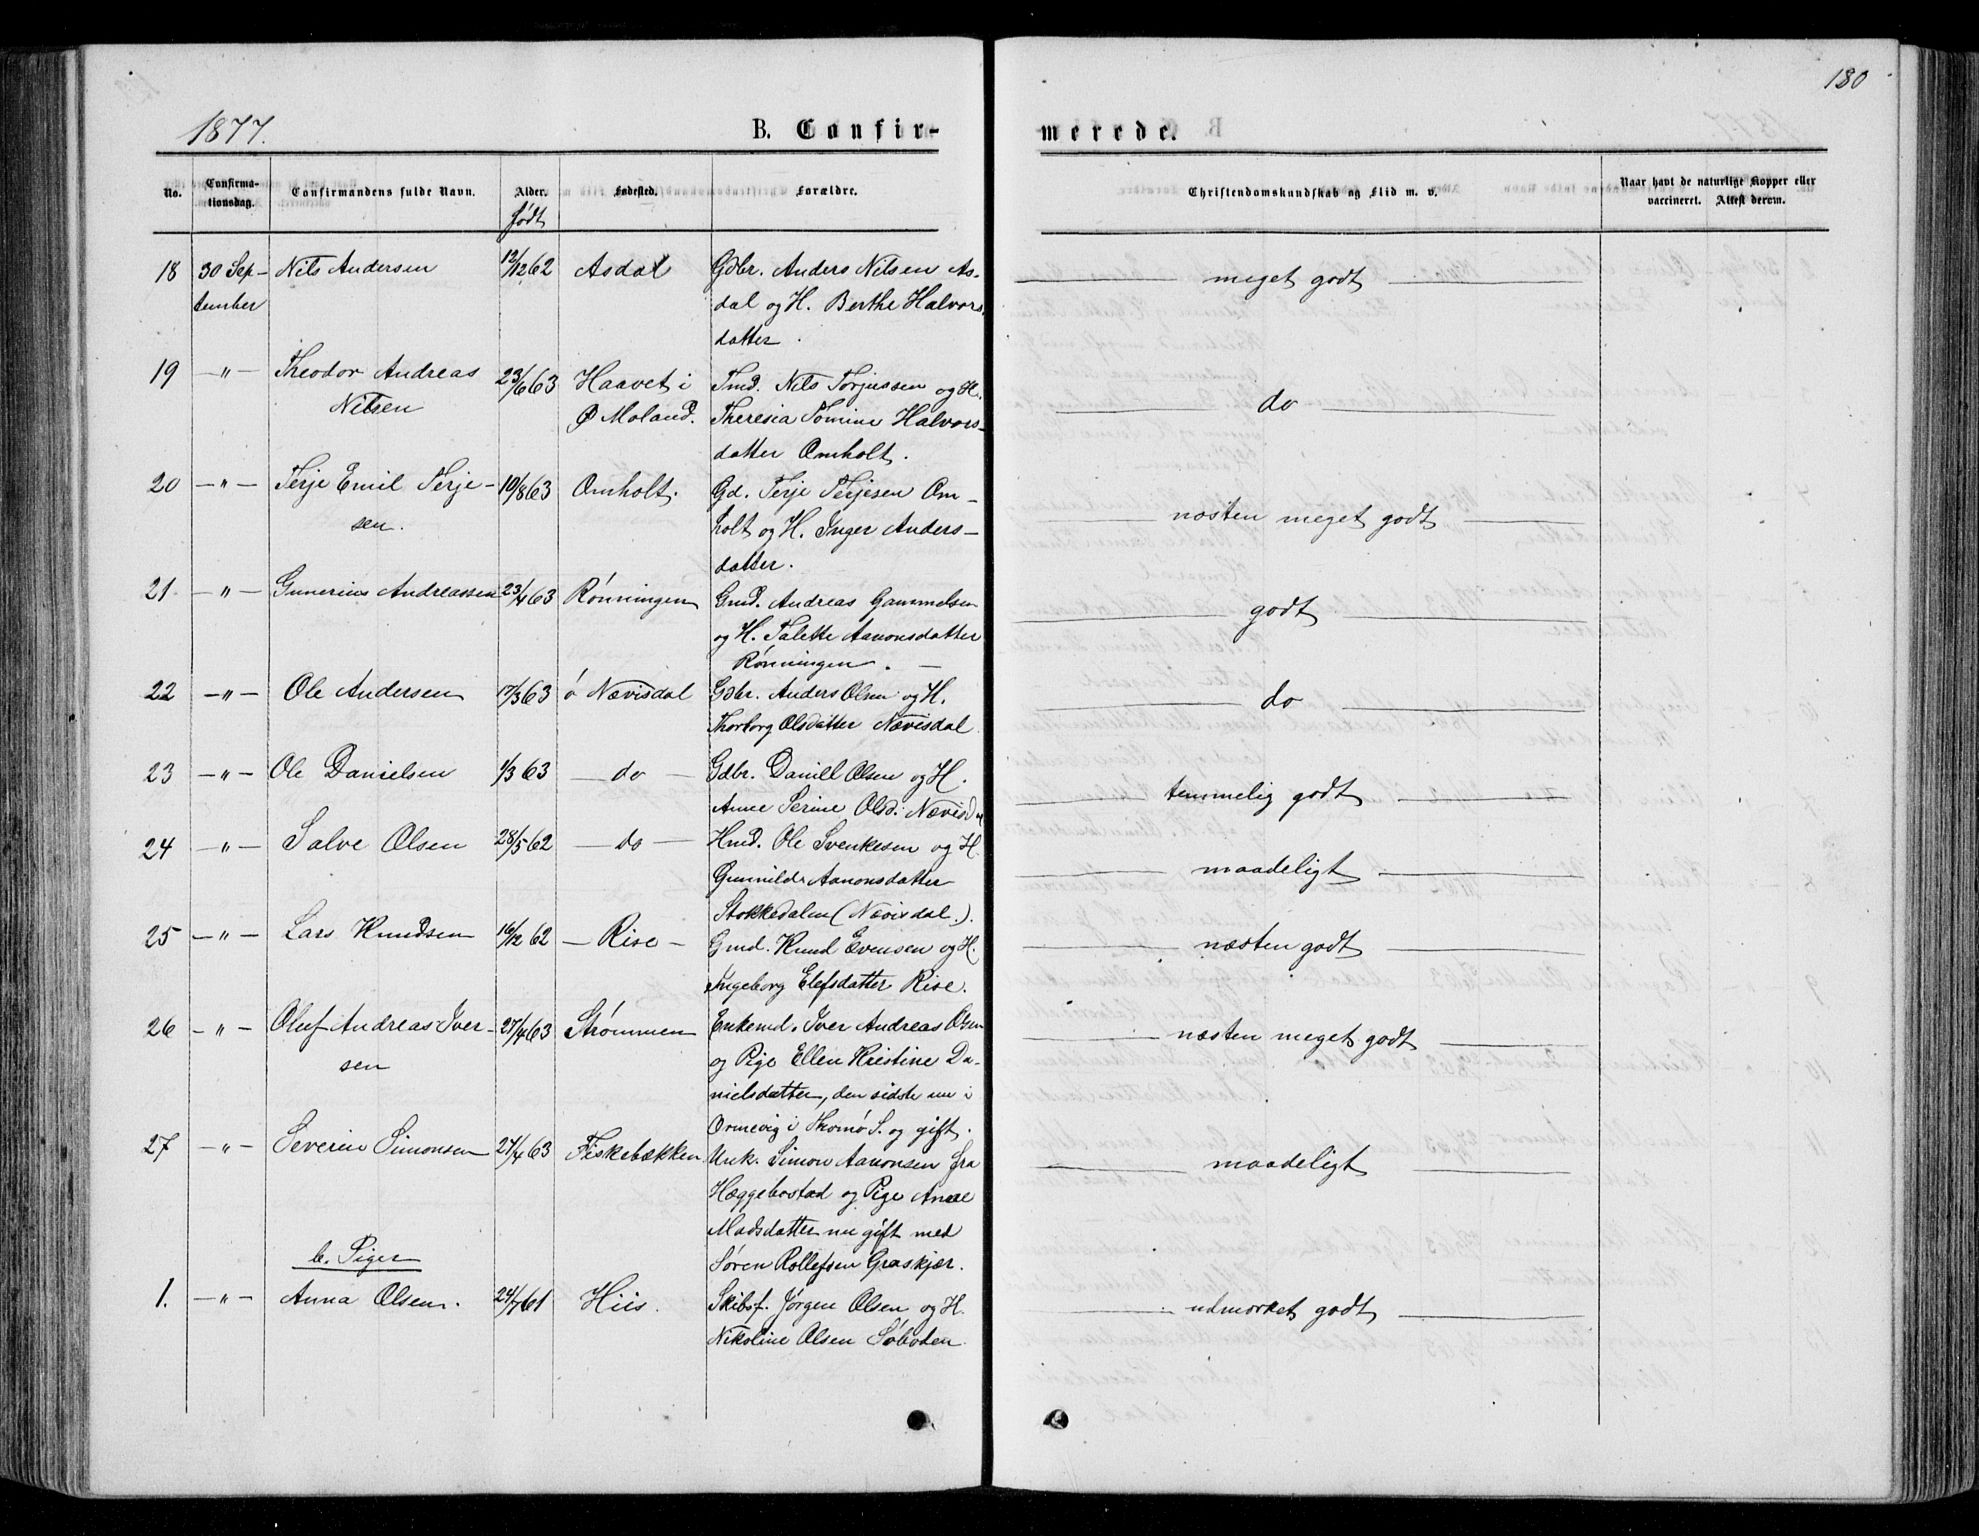 180
1877.
B. Confir-
merede.
No.
Confirma-
tionsdag.
Confirmandens fulde Navn.
Alder.
født
Fødested.
Forældre.
Christendomskundskab og Flid m. v.
Naar havt de naturlige Kopper eller
vaccineret. Attest derom.
18 30 Sep- Nils Andersen 12/12 62 Asdal Gdbr. Anders Nilsen As-
tember dal og H. Berthe Halvors-
datter.
meget godt
19 -"- Theodor Andreas 23/6 63 Haavet i Tmd. Nils Torjussen og H.
Nilsen Ø Moland. Theresia Tomine Halvors-
datter Omholt.
do
20 -"- Terje Emil Terje- 10/8 63 Omholt. Gd. Terje Terjesen Om-
sen. holt og H. Inger Anders-
datter.
næsten meget godt
21 -"- Gunerius Andreassen 23/4 63 Rønningen Gmd. Andreas Gammelsen
og H. Talette Aanonsdatter
Rønningen.
godt
22 -"- Ole Andersen 17/3 63 ø Nævisdal Gdbr. Anders Olsen og H.
Thorborg Olsdatter Nævisdal
do
23 -"- Ole Danielsen 1/3 63 - do - Gdbr. Daniel Olsen og H.
Anne Serine Olsd. Nævisdal
temmelig godt
24 -"- Salve Olsen 28/5 62 - do - Hmd. Ole Svenkesen og H.
Gunnilde Aanonsdatter
Stokkedalen (Nævisdal.).
maadeligt
25 -"- Lars Knudsen 16/12 62 - Rise - Gmd. Knud Evensen og H.
Ingeborg Elefsdatter Rise.
næsten godt
26 -"- Oluf Andreas Iver- 27/4 63 Strømmen Enkemd. Iver Andreas Olsen
sen og Pige Ellen Kristine Da-
nielsdatter, den sidste nu i
Ormevig i Thomø S. og gift.
næsten meget godt
27 -"- Severin Simonsen 27/4 63 Fiskebækken Unk. Simon Aanonsen fra
Hæggebostad og Pige Anne
Madsdatter nu gift med
Søren Rollefsen Graskjær.
maadeligt
b. Piger
1. -"- Anna Olsen. 24/7 61 Hiis. Skibsf. Jørgen Olsen og H.
Nikoline Olsen Søboden
udmærket godt